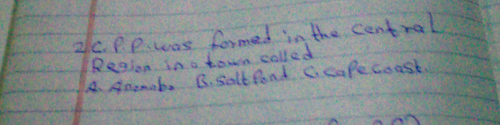 2. C.P.P. was formed in the central
Region in a town called
A. Anomabo B. Saltpond C. Cape coast.